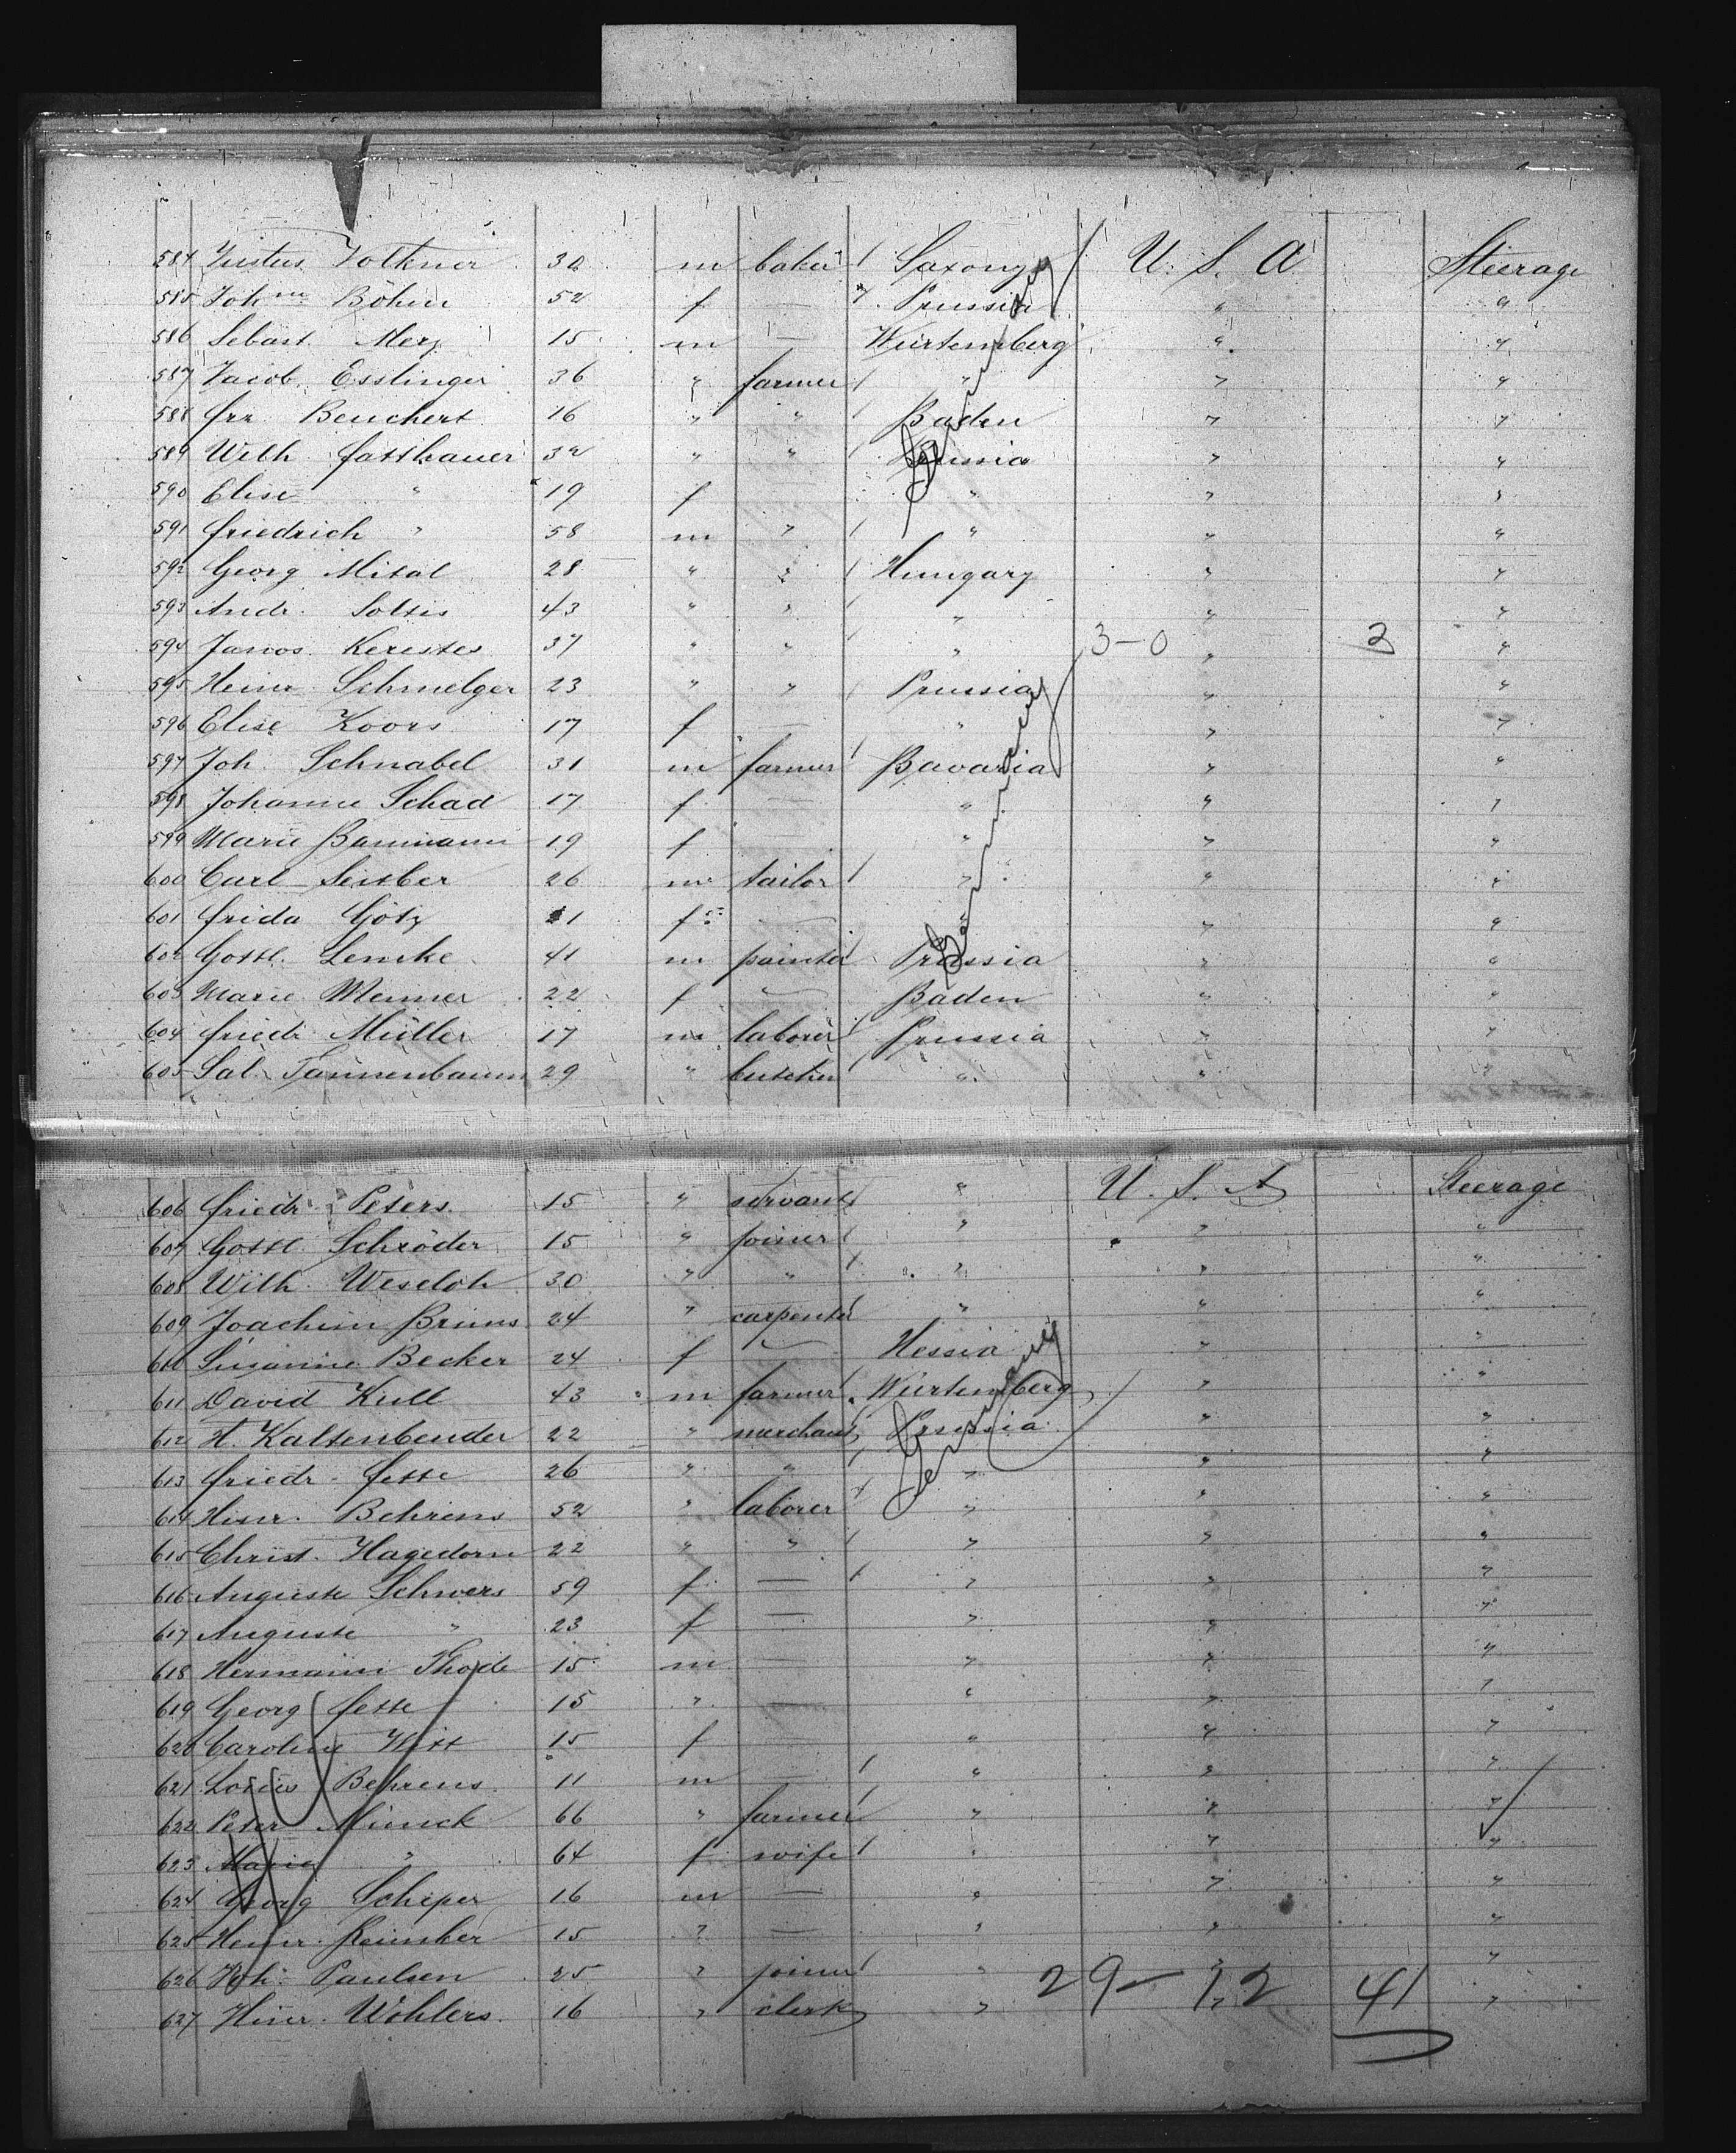 584 Justus Volkner 30 m baker / Saxony U. S. A Steerage
585 Joh ne Böhm 52 f — " Prussia " "
586 Sebast. Merz 15 m — Würtemberg " "
587 Jacob Esslinger 36 " farmer / " " "
588 Frz Beuchert 16 " " / Baden " "
589 Wilh Fasshauer 32 " " / Prussia " "
590 Elise " 19 f " " "
591 Friedrich " 58 m " / " " "
592 Georg Mital 28 " " / Hungary " "
593 Andr. Soltis 43 " " / " " "
594 Janos Kerestes 37 " " / " 3-0 " 3 "
595 Heinr Schmelger 23 " " / Prussia " "
596 Elise Koors 17 f — " " "
597 Joh. Schnabel 31 m farmer / Bavaria " "
598 Johanne Schad 17 f — " " "
599 Marie Baumann 19 f — " " "
600 Carl 26 m tailor / " " "
601 Frida Götz 21 f — " " "
602 Gottl. Lemke 41 m painter / Prussia " "
603 Marie 22 f — Baden " "
604 Friedr Müller 17 m laborer / Prussia " "
605 Sal. Tannenbaum 29 " butcher / " " "
Germany
Germany
606 Friedr Peters 15 " servant " U. S. A Steerage
607 Gottl Schröder 15 " joiner / " " "
608 Wilh Weseloh 30 " " / " " "
609 Joachim Bruns 24 " carpenter / " " "
610 Susanne Becker 24 f — Hessia " "
611 David Kull 43 m farmer / Würtemberg " "
612 H. Kaltenbender 22 " merchant / Prussia " "
613 Friedr. Fette 26 " " / " " "
614 Hinr. Behrens 52 " laborer / " " "
615 Christ. Hagedorn 22 " " / " " "
616 Auguste Schwers 59 f — / " " "
617 Auguste " 23 f — " " "
618 Hermann Thode 15 m — " " "
619 Georg Fette 15 " — " " "
620 Caroline Witt 15 f — " " "
621 Louis Behrens 11 m — / " " "
622 Peter Minck 66 " farmer / " " "
623 Marie " 64 f wife / " " "
624 Georg Scheper 16 m — " " "
625 Heinr. 15 " — " " "
626 Joh. Paulsen 25 " joiner / " " "
627 Hinr. Wohlers 16 " clerk " 29-12 " 41 "
Germany